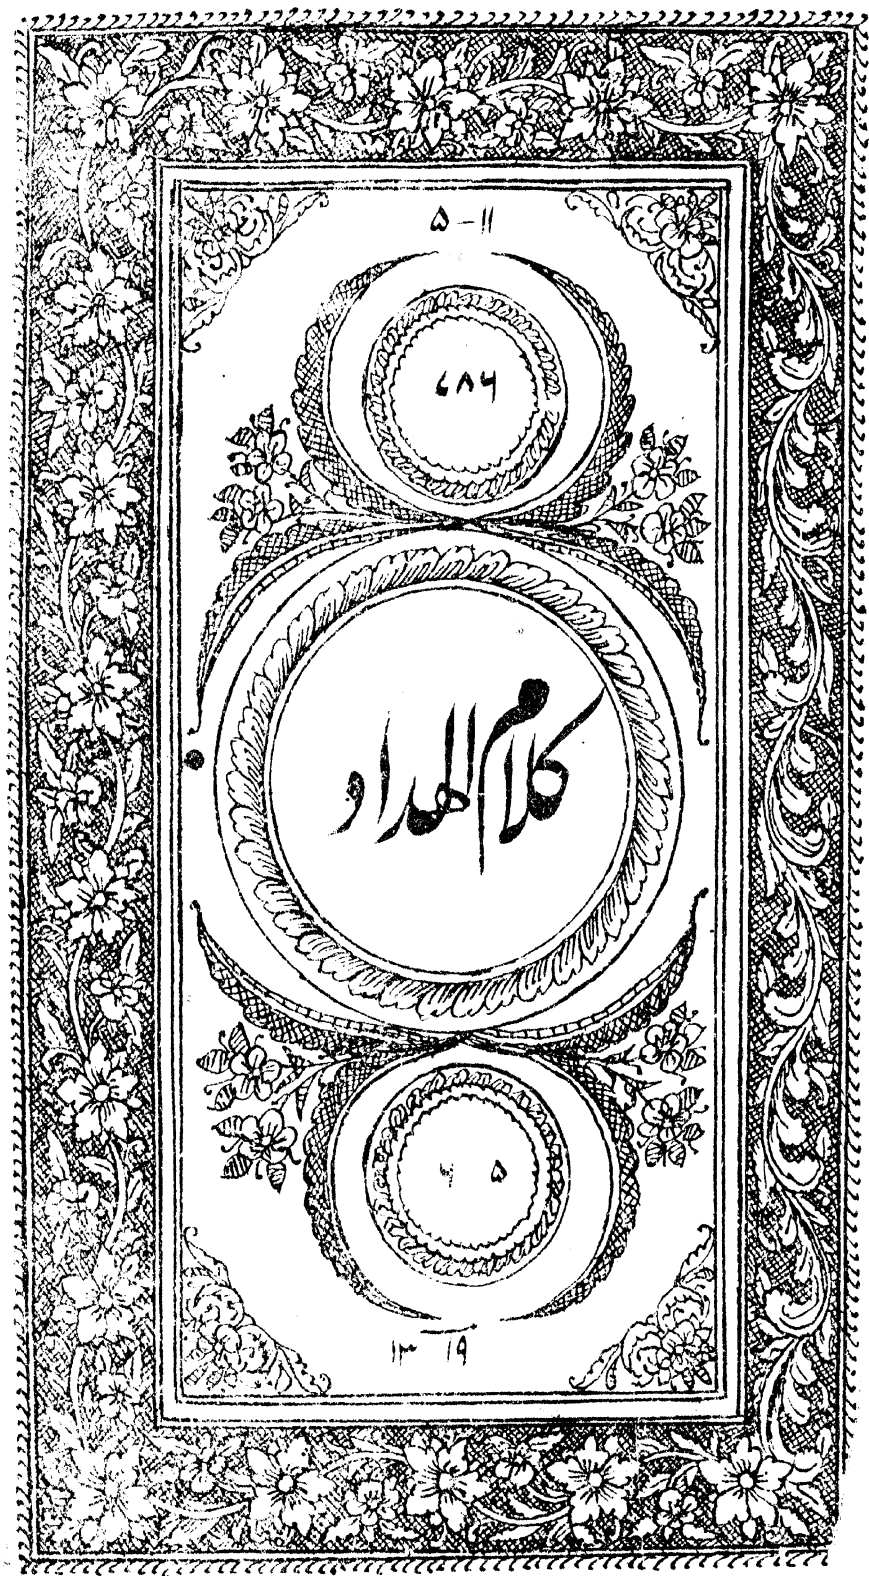 ۵-۱۱
۷۸۶
کلام الهداد
۶ ۵
۱۳ ۱۹